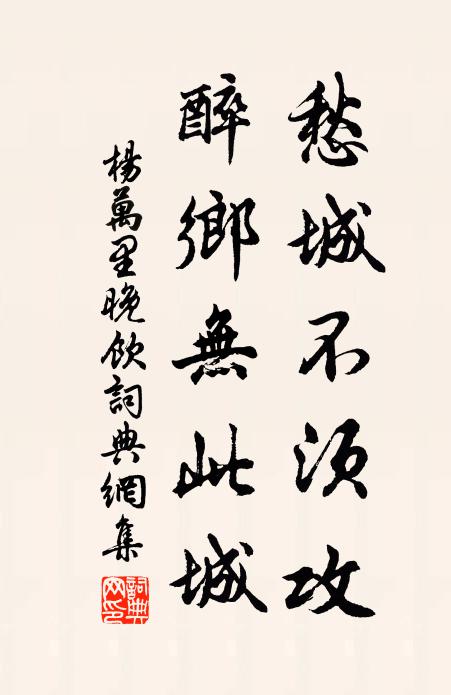 愁城不須攻
醉鄉無此城
楊萬里晚飲詞典網集
詞典網印